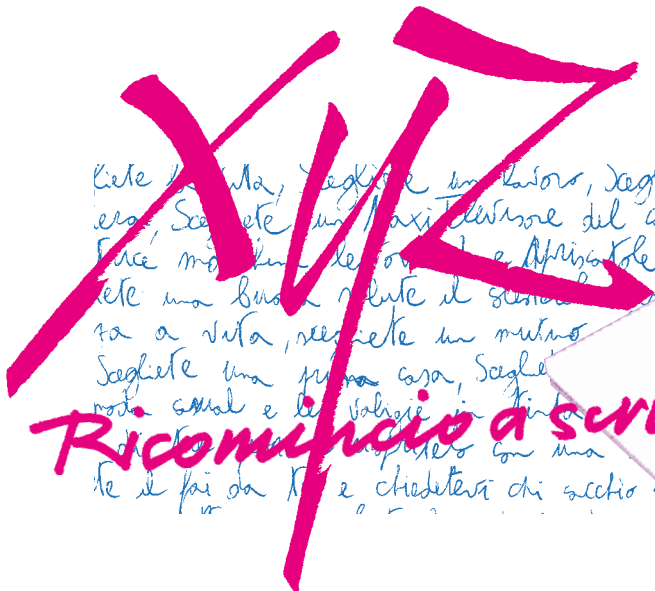 XYZ
Ricomincio a scri
liete la vita, Scegliete un lavoro, Scegl
era, Scegliete un Maxi Televisore del c
e Apriscatole
ete una buona salute il
za a vita, scegliete un mutuo
Scegliete una prima casa, Scegliete
moda casual e le valigie in tinta
con una
te il fai da te e chiedetevi chi cacchio